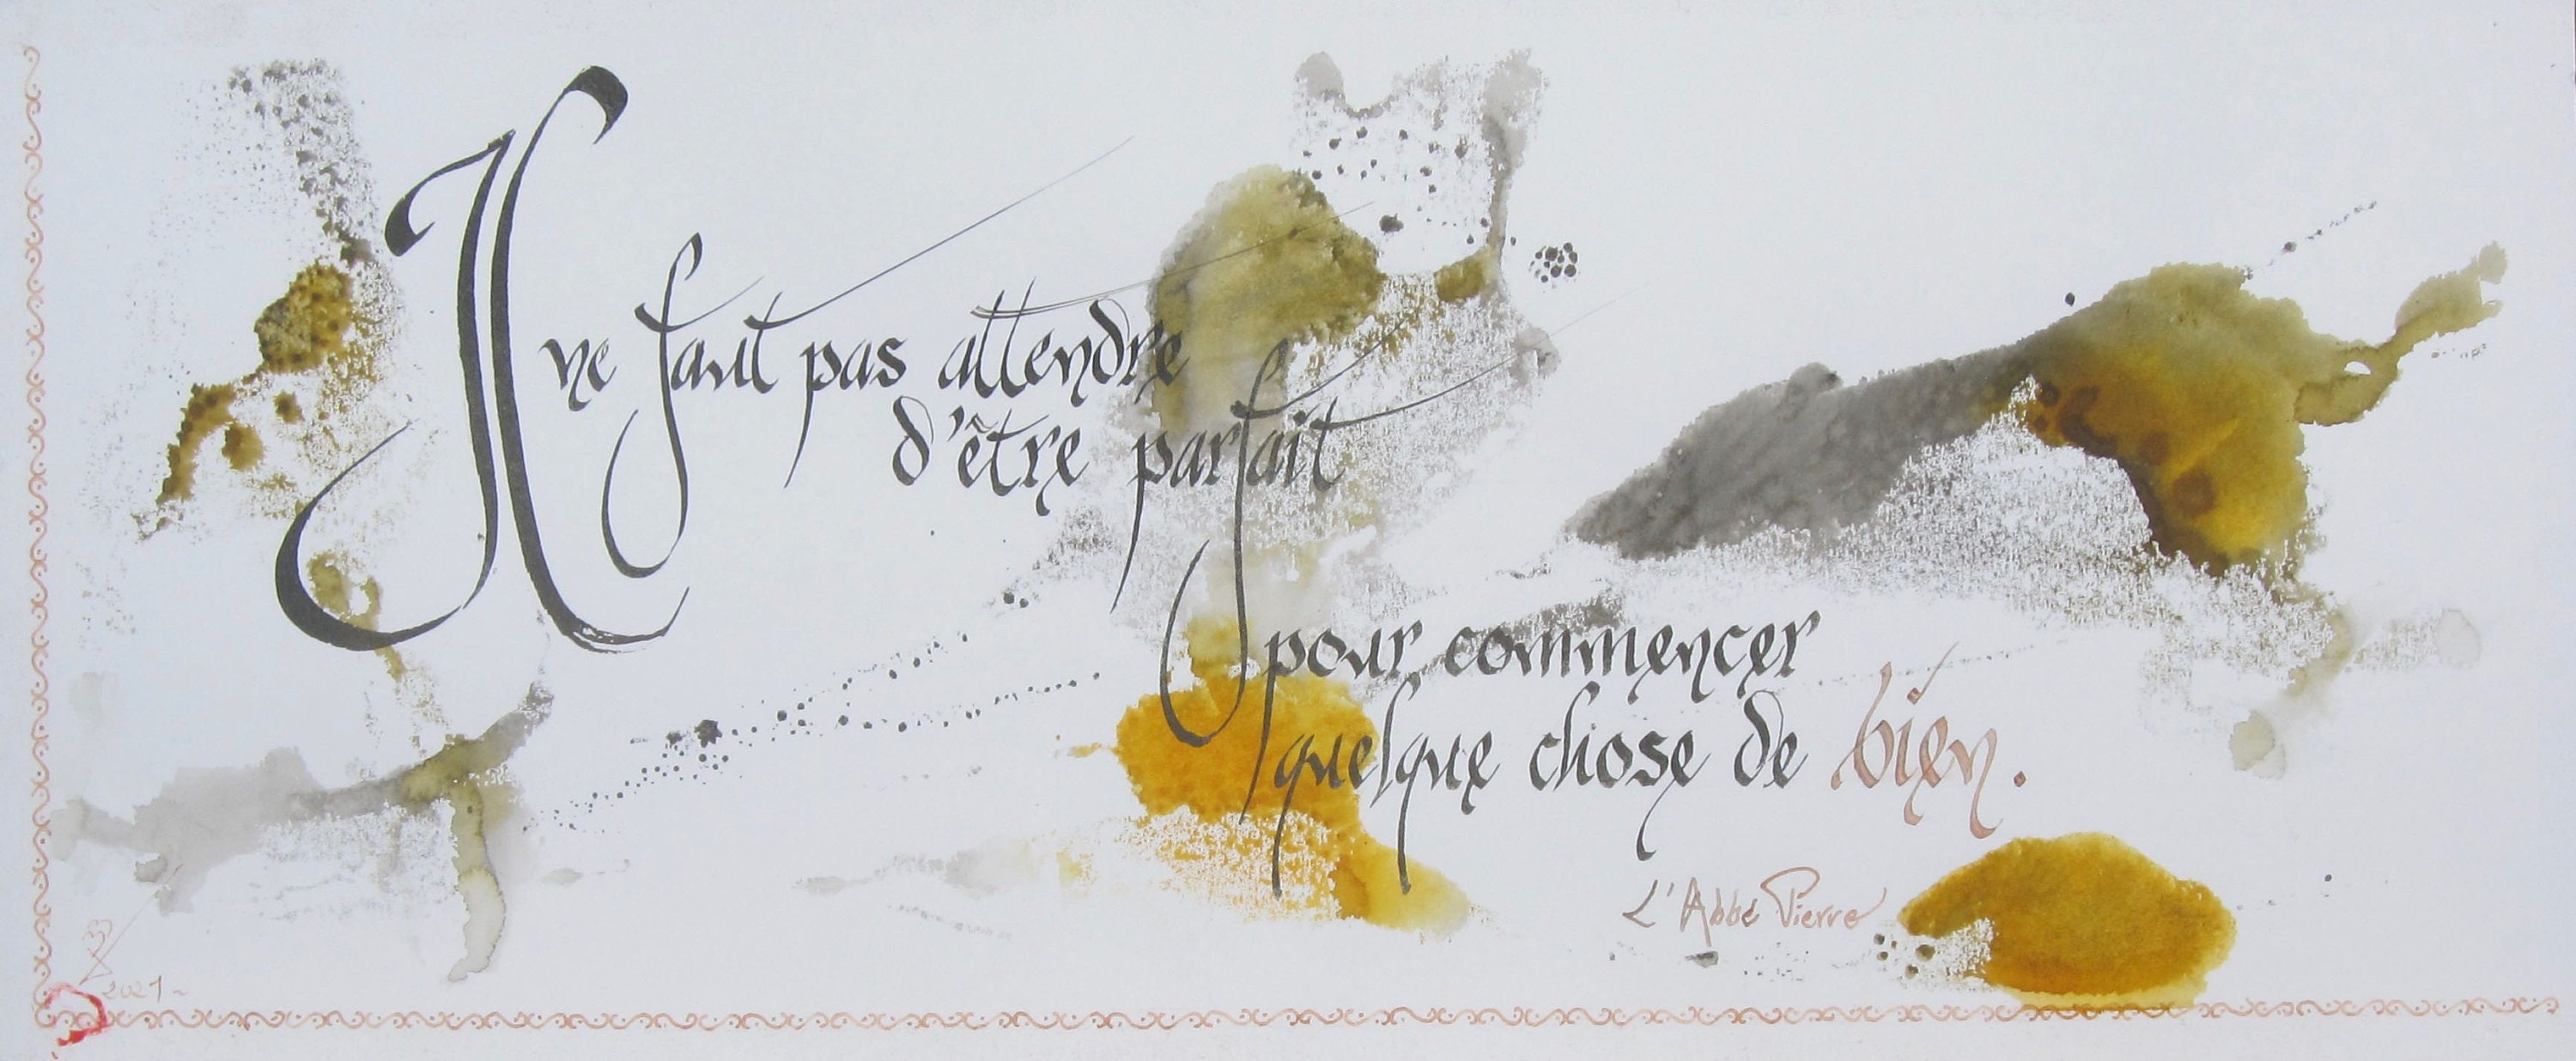 Il ne faut pas attendre
d'être parfait
pour commencer
quelque chose de bien.
L'Abbé Pierre
2021